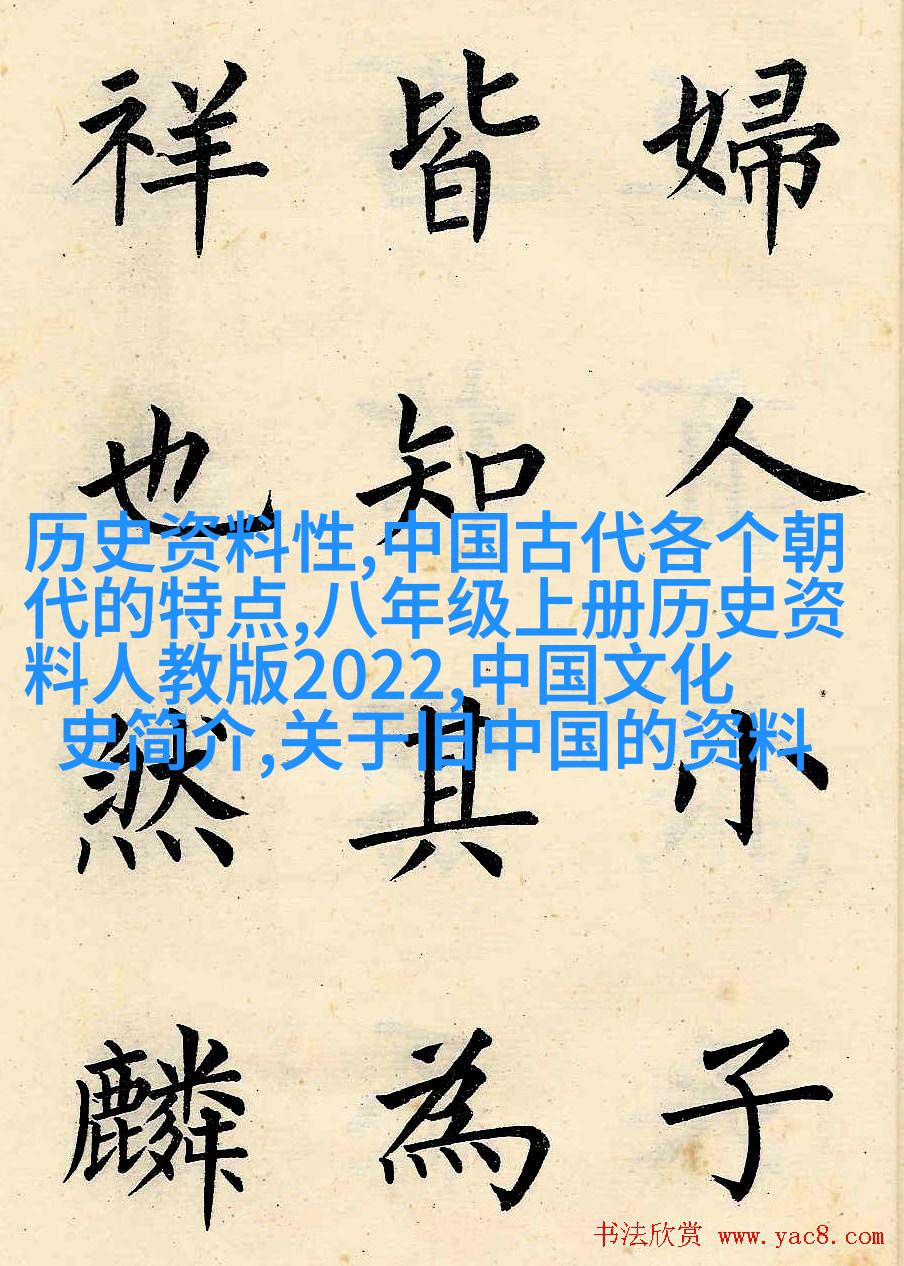 婦人小子
皆知其為
祥也然麟
历史资料性,中国古代各个朝
代的特点,八年级上册历史资
料人教版2022,中国文化
史简介,关于旧中国的资料
书法欣赏 www.yac8.com